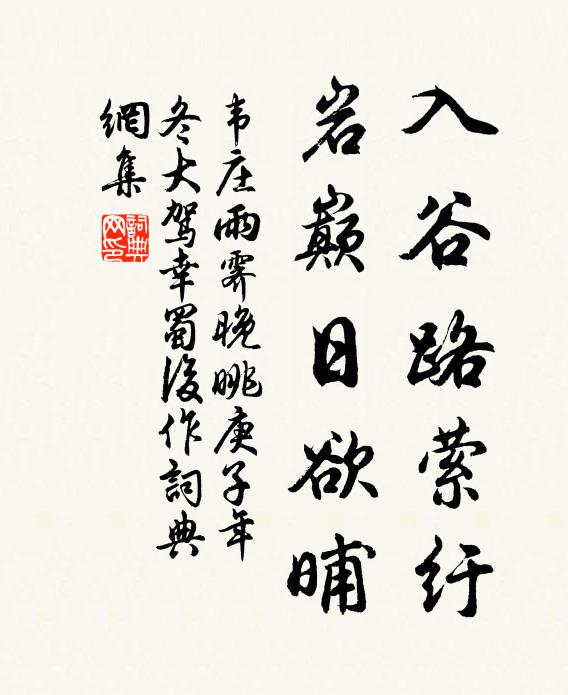 入谷路萦纡
岩巅日欲晡
韦庄雨霁晚眺庚子年
冬大驾幸蜀後作詞典
網集
詞典网印